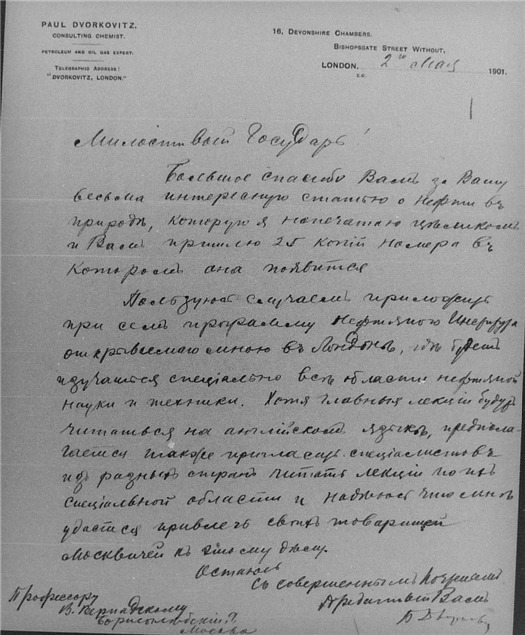 PAUL DVORKOVITZ,
CONSULTING CHEMIST.
PETROLEUM AND OIL GAS EXPERT.
TELEGRAPHIC ADDRESS:
"DVORKOVITZ, LONDON."
16, DEVONSHIRE CHAMBERS,
BISHOPSGATE STREET WITHOUT,
LONDON, 2го Мая 1901.
E.C.
Милостивый Государь!
Большое спасибо Вамъ за Вашу
весьма интересную статью о нефти въ
природѣ, которую я напечатаю цѣликомъ
и Вамъ пришлю 25 копій номера въ
которомъ она появится
Пользуюсь случаемъ приложить
при семъ программу Нефтяного Института
открываемаго мною въ Лондонѣ, гдѣ будетъ
изучаться спеціально всѣ области нефтяной
науки и техники. Хотя главныя лекціи будутъ
читаться на англійскомъ языкѣ, предпола-
гается также пригласить спеціалистовъ
изъ разныхъ странъ читать лекціи по ихъ
спеціальной области и надѣюсь что мнѣ
удастся привлечь своихъ товарищей
Москвичей къ этому дѣлу.
Остаюсь
Съ совершеннымъ почтеніемъ
Преданный Вамъ
Профессору
В. Вернадскому
Москва